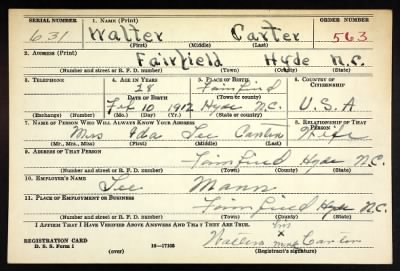 SERIAL NUMBER 1. NAME (Print) ORDER NUMBER
631 Walter Carter 563
(First) (Middle) (Last)
2. ADDRESS (Print)
Fairfield Hyde N.C.
(Number and street or R. F. D. number) (Town) (County) (State)
3. TELEPHONE 4. AGE IN YEARS 5. PLACE OF BIRTH 6. COUNTRY OF CITIZENSHIP
28 Fairfield
DATE OF BIRTH (Town or county)
Feb 10, 1912 Hyde N.C. U.S.A
(Exchange) (Number) (Mo.) (Day) (Yr.) (State or country)
7. NAME OF PERSON WHO WILL ALWAYS KNOW YOUR ADDRESS 8. RELATIONSHIP OF THAT PERSON
Mrs Ida Lee Carter Wife
(Mr., Mrs., Miss) (First) (Middle) (Last)
9. ADDRESS OF THAT PERSON
Fairfield Hyde N.C.
(Number and street or R. F. D. number) (Town) (County) (State)
10. EMPLOYER'S NAME
Lee Mann
11. PLACE OF EMPLOYMENT OR BUSINESS
Fairfield Hyde N.C.
(Number and street or R. F. D. number) (Town) (County) (State)
I AFFIRM THAT I HAVE VERIFIED ABOVE ANSWERS AND THAT THEY ARE TRUE.
his
REGISTRATION CARD Walter x Carter
D. S. S. Form 1 16-17105 mark
(over) (Registrant's signature)